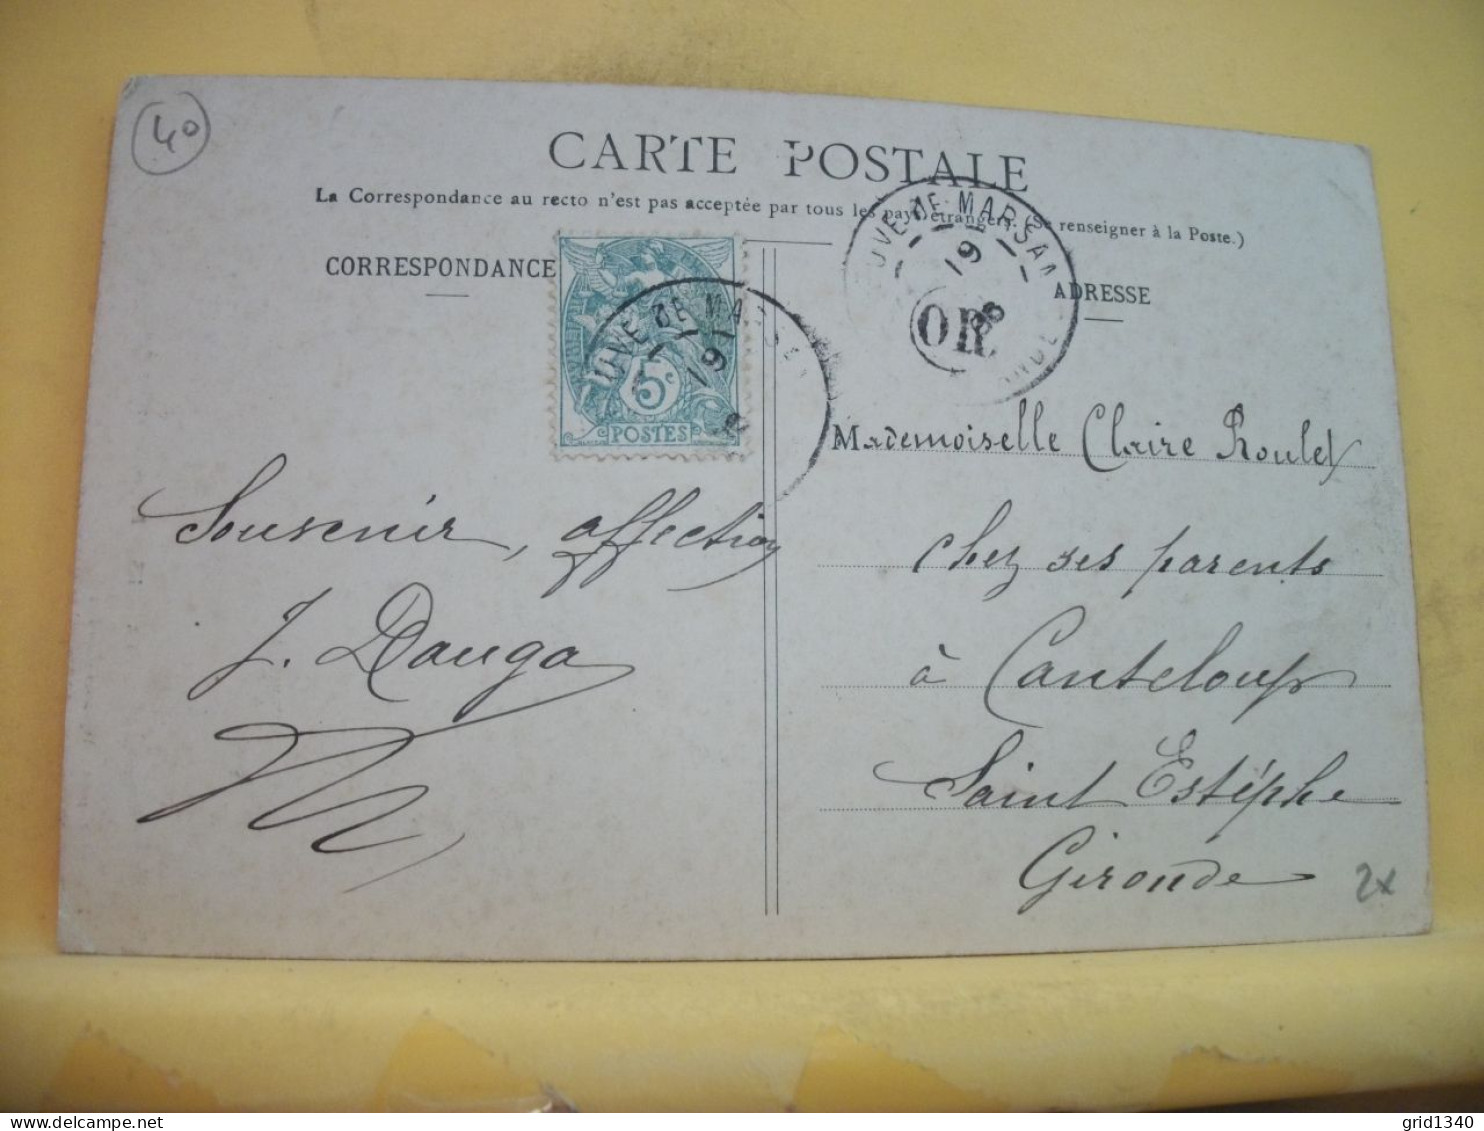 40
CARTE POSTALE
La Correspondance au recto n'est pas acceptée par tous les pays étrangers. (Se renseigner à la Poste.)
CORRESPONDANCE
ADRESSE
UVE-DE-MARSAN
19
OR
UVE-DE-MARS
19
5c
POSTES
Mademoiselle Claire Roulet
chez ses parents
à Canteloup
Saint Estéphe
Gironde
Souvenir, affection
J. Dauga
2x
delcampe.net
grid1340